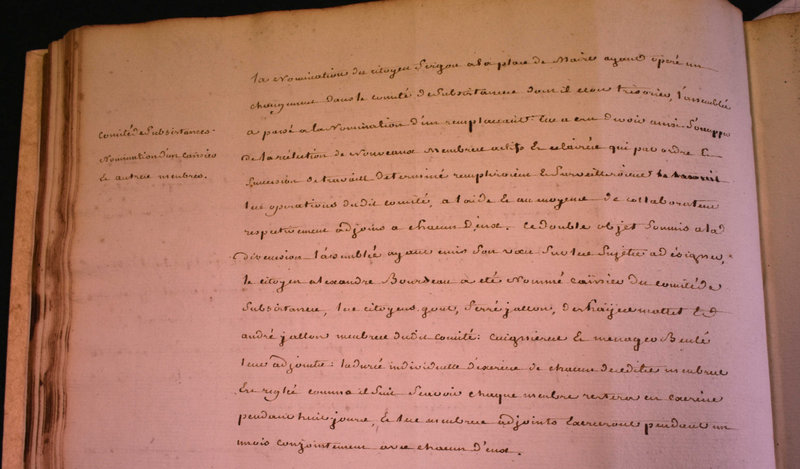 Comité de Subsistances.
Nomination d'un Caissier
Et autres membres.
la Nomination du citoyen Sergou a la place de Maire ayant opéré un
changement dans le comité de Subsistances dont il etoit trésorier, l'assemblée
a passé a la Nomination d'un remplaçant. Elle a cru devoir aussi S'occuper
de la réélection de Nouveaux Membres actifs Et eclairés qui par ordre Et
Succession de travail determiné rempliroient Et Surveilleroient
les operations dudit comité, a l'aide Et au moyen de collaborateurs
respectivement adjoins a chacun D'eux. Ce double objet Soumis a la
discussion l'assemblée ayant emis Son vœu Sur les Sujets a désigner,
le citoyen alexandre Bourdeau a été Nommé caissier du comité de
Subsistances, les citoyens gout, Serré jallon, mottet Et
andré jallon membres dudit comité: Et menageo
leurs adjoints: la durée individuelle d'exercice de chacun desdits membres
Est reglé comme il Suit Scavoir chaque membre restera en exercice
pendant huit jours, Et les membres adjoints Exerceront pendant un
mois conjointement avec chacun D'eux.